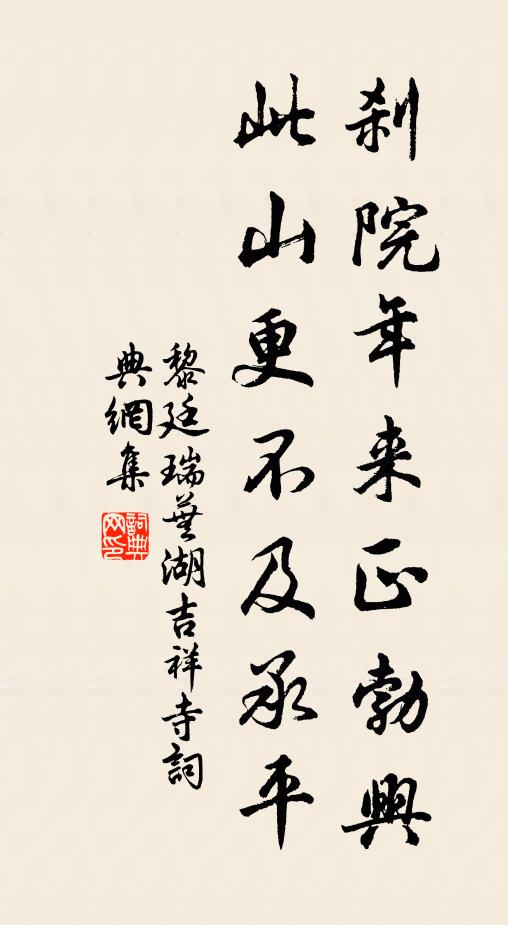 刹院年来正勃興
此山更不及承平
黎廷瑞蕪湖吉祥寺詞
典網集
詞典
网印